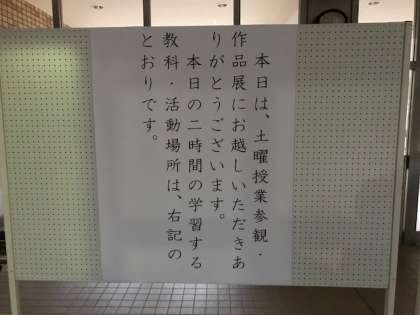 本日は、土曜授業参観・
作品展にお越しいただきあ
りがとうございます。
本日の二時間の学習する
教科・活動場所は、右記の
とおりです。